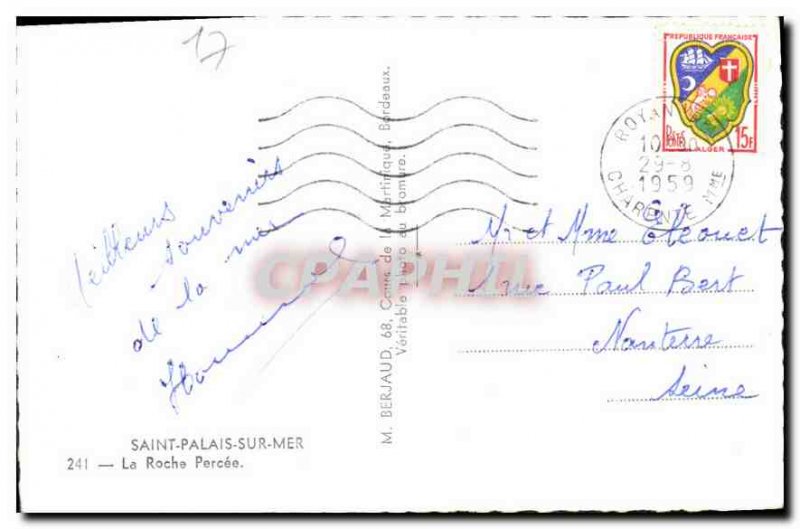 17
REPUBLIQUE FRANÇAISE
Postes 15F
ALGER
ROYAN
29-8
1959
CHARENTE MME
Meilleurs
souvenirs
de la mer
M. BERJAUD, 68, Cours de la Martinique, Bordeaux.
Véritable photo au bromure.
CPAPHIL
Mr et Mme
rue Paul Bert
Nanterre
Seine
SAINT-PALAIS-SUR-MER
241 — La Roche Percée.